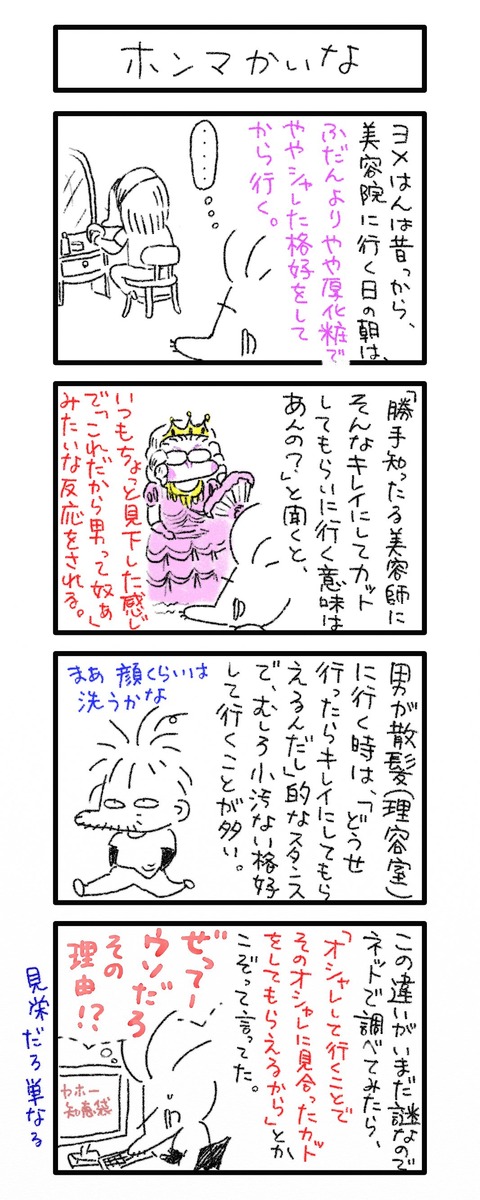 ホンマかいな
ヨメはんは昔っから、
美容院に行く日の朝は、
ふだんよりやや厚化粧で
ややシャレした格好をして
から行く。
……
「勝手知ったる美容師に
そんなキレイにしてカット
してもらいに行く意味は
あんの？」と聞くと、
いつもちょっと見下した感じ
で「これだから男って奴ぁ」
みたいな反応をされる。
男が散髪(理容室)
に行く時は、「どうせ
行ったらキレイにしてもら
えるんだし」的なスタンス
で、むしろ小汚ない格好
して行くことが多い。
まあ顔くらいは
洗うかな
この違いがいまだ謎なので
ネットで調べてみたら、
「オシャレして行くことで
そのオシャレに見合ったカット
をしてもらえるから」とか
こぞって言ってた。
ぜってー
ウソだろ
その
理由!?
ヤホー
知恵袋
見栄だろ単なる